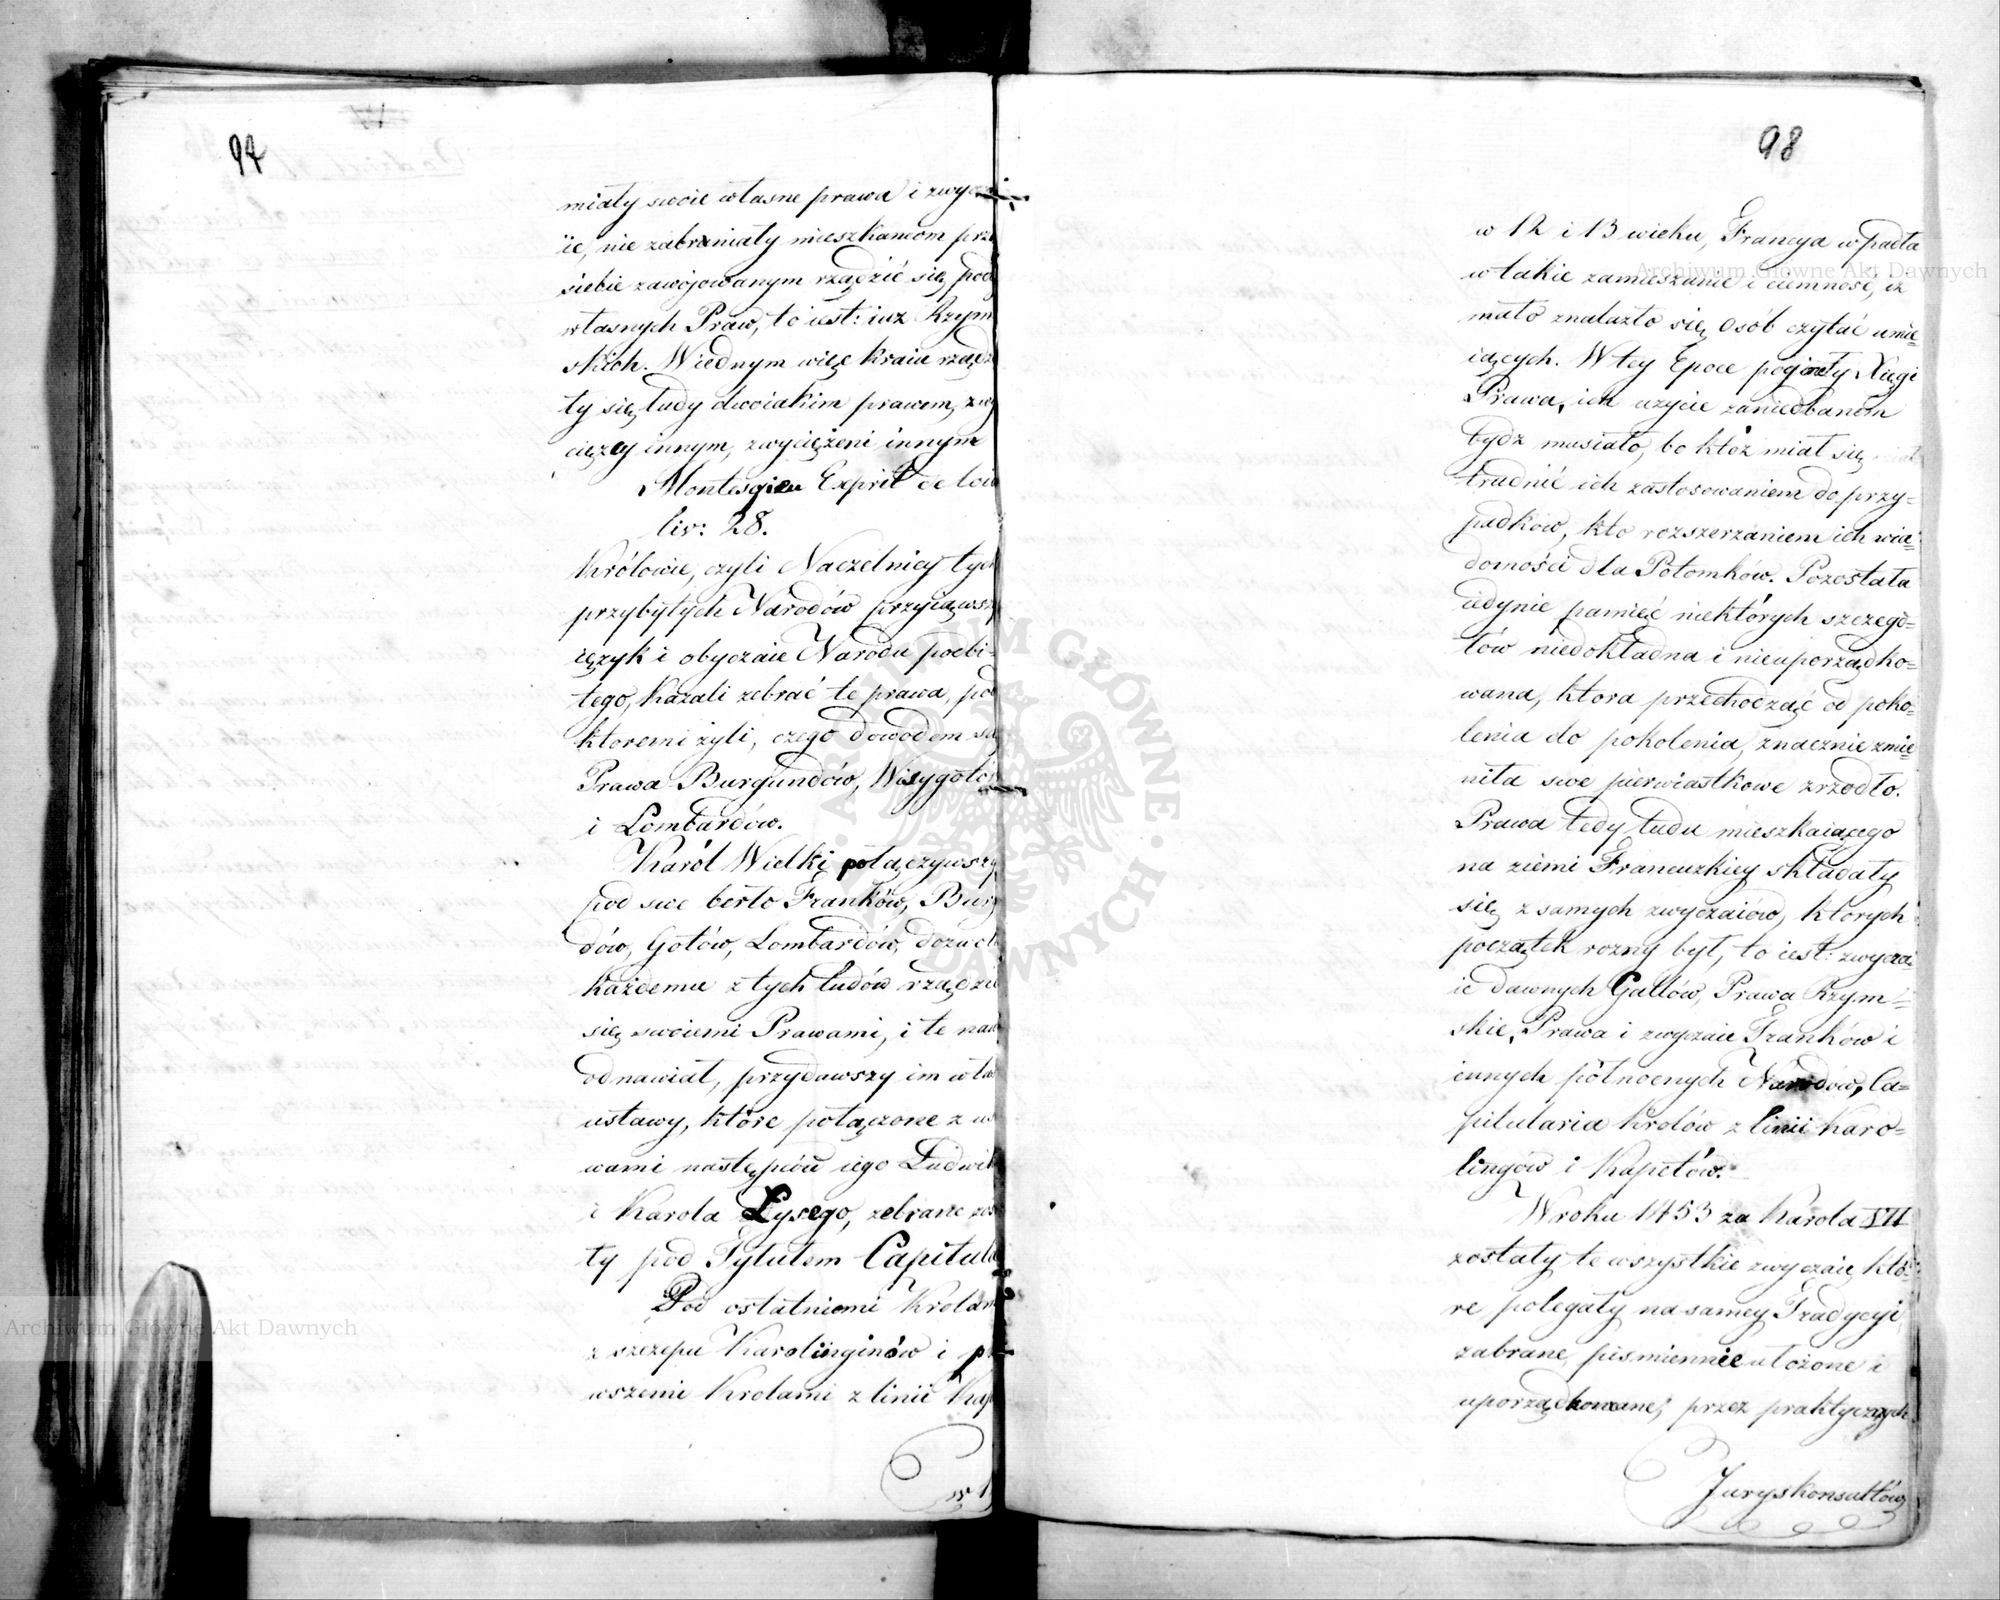 94
miały swoie własne prawa i zwycza
ie, nie zabraniały mieszkańcom prze
siebie zawojowanym rządzić się pod
własnych Praw, to iest: iuz Rzym
skich. Wiednym więc kraiu rządzi
ły się ludy dwoiakim prawem, zwy
cięzcy innym, zwyciężeni innym
Montesqieu Exprit de loix
liv: 28.
Królowie, czyli Naczelnicy tych
przybyłych Narodów przyiąwszy
ięzyk i obyczaie Narodu podbi-
tego, kazali zebrać te prawa, pod
ktoremi żyli, czego dowodem są
Prawa Burgundów, Wisygotów
i Lombardów.
Karól Wielki połączywszy
pod swe berło Franków, Burg
dów, Gotów, Lombardów, dozwolił
każdemu z tych ludów rządzić
się swoiemi Prawami, i te nad
odnawiał, przydawszy im wła
ustawy, które połączone z us
wami następców iego Ludwik
i Karola Łysego, zebrane zos
ły pod Tytułem Capitula
Pod ostatniemi Krolam
z szczepu Karolinginów i pi
wszemi Krolami z linii Kap
w 1
98
w 12 i 13 wieku, Francya wpadła
w takie zamieszanie i ciemność, iż
mało znalazło się osób czytać umie=
iących. W tey Epoce poginęły Xięgi
Prawa, ich użycie zaniedbaném
bydź musiało, bo któż miał się
trudnić ich zastosowaniem do przy=
padków, kto rozszerzaniem ich wia=
domości dla Potomków. Pozostała
iedynie pamięć niektórych szczegó=
łów niedokładna i nieuporządko=
wana, ktora przechodząć od poko=
lenia do pokolenia, znacznie zmie
niła swe pierwiastkowe zrzodło.
Prawa tedy ludu mieszkaiącego
na ziemi Francuzkiey składały
się z samych zwyczaiów, ktorych
początek rozny był, to iest: zwycza
ie dawnych Gallów, Prawa Rzym=
skie, Prawa i zwyczaie Franków i
innych północnych Narodów, Ca=
pitularia Krolów z linii Karo=
lingów i Kapetów.
W roku 1453 za Karola VII
zostały te wszystkie zwyczaie, któ=
re polegały na samey Tradycyi
zabrane, pismiennie ułożone i
uporządkowane, przez praktycznych
Juryskonsultów
Archiwum Główne Akt Dawnych
Archiwum Główne Akt Dawnych
ARCHIWUM GŁÓWNE AKT DAWNYCH